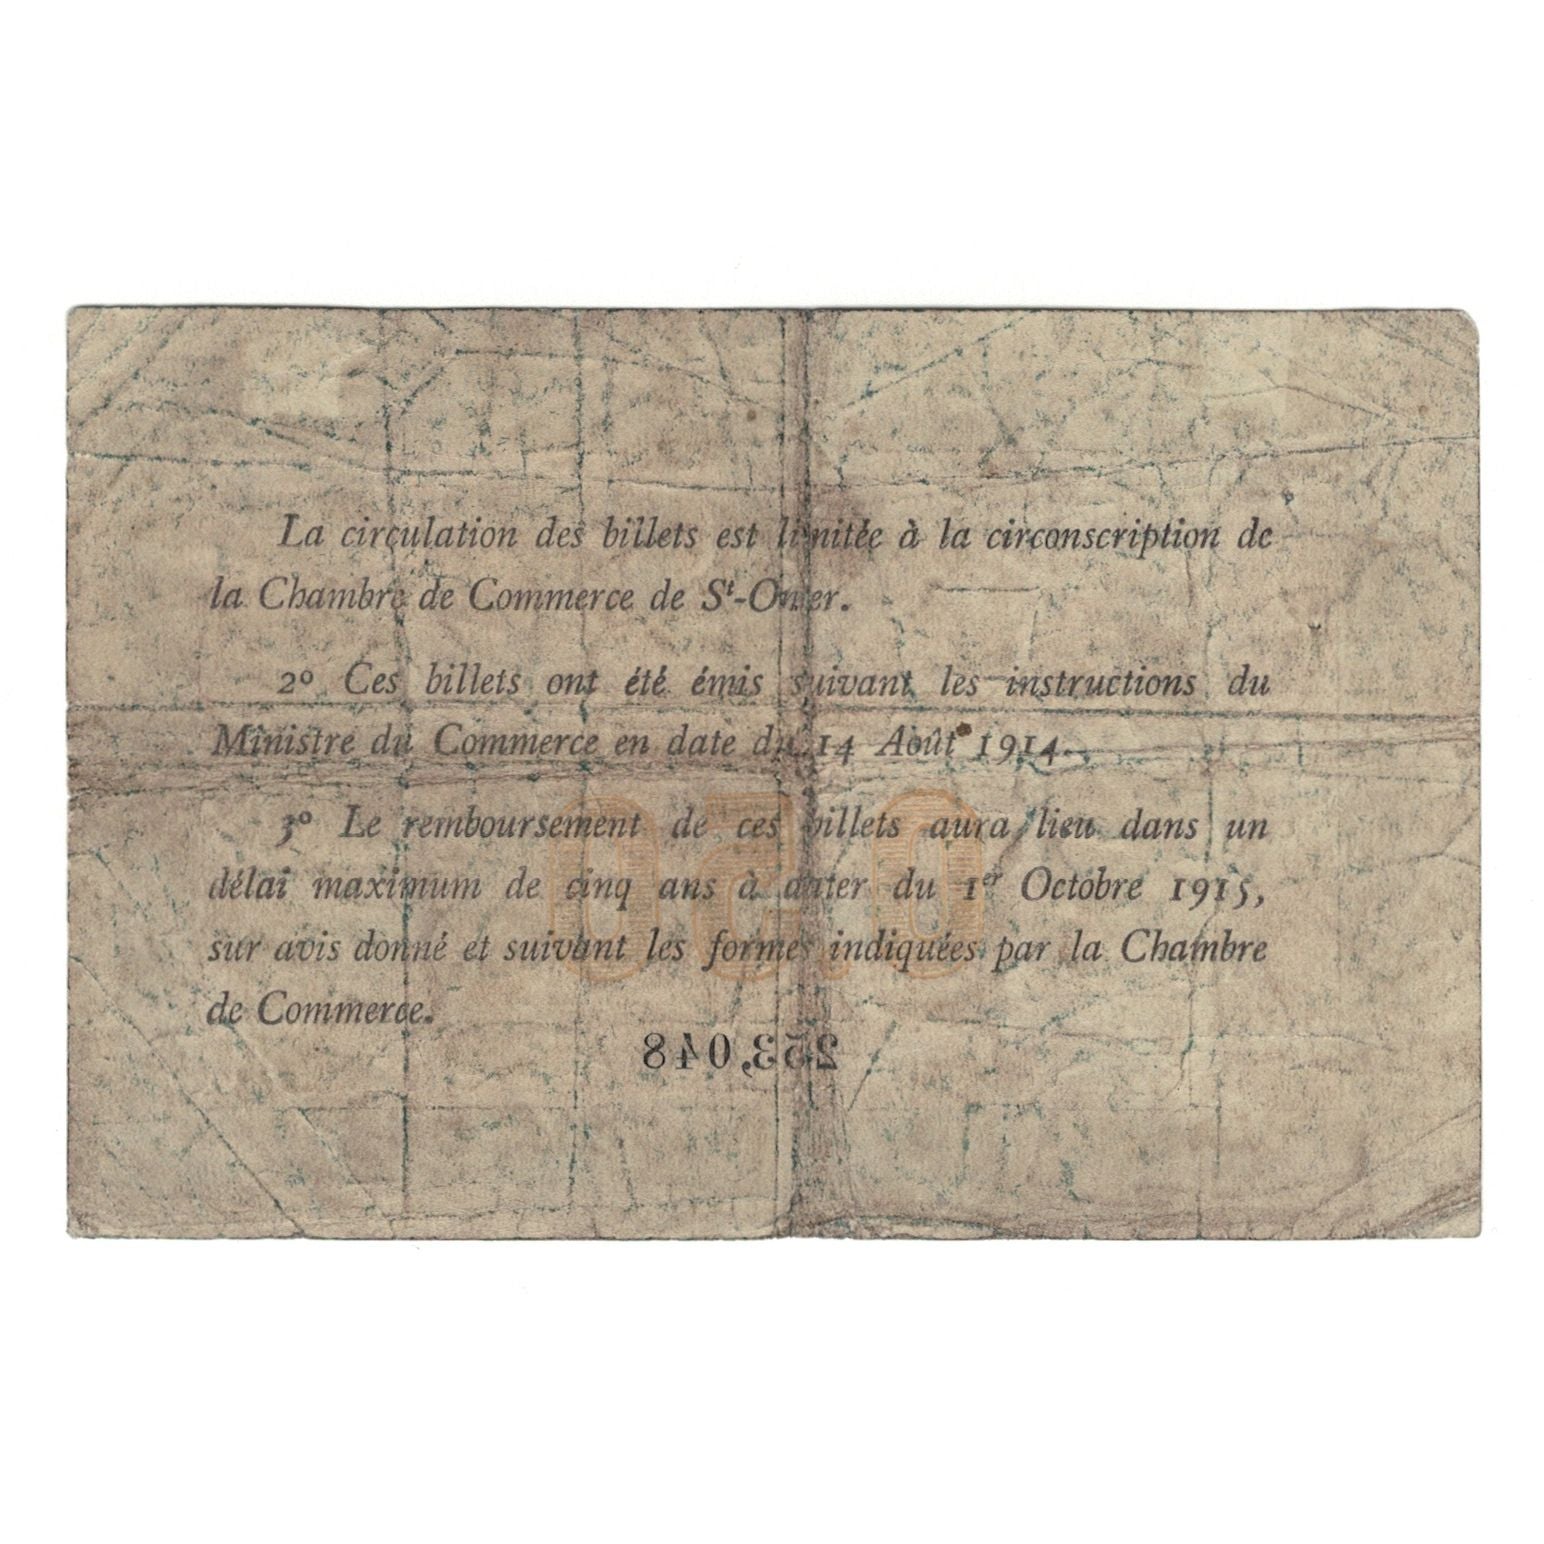 La circulation des billets est limitée à la circonscription de
la Chambre de Commerce de Sᵗ-Omer.
2º Ces billets ont été émis suivant les instructions du
Ministre du Commerce en date du 14 Août 1914.
3º Le remboursement de ces billets aura lieu dans un
délai maximum de cinq ans à dater du 1ᵉʳ Octobre 1915,
sur avis donné et suivant les formes indiquées par la Chambre
de Commerce.
0,50
253,048